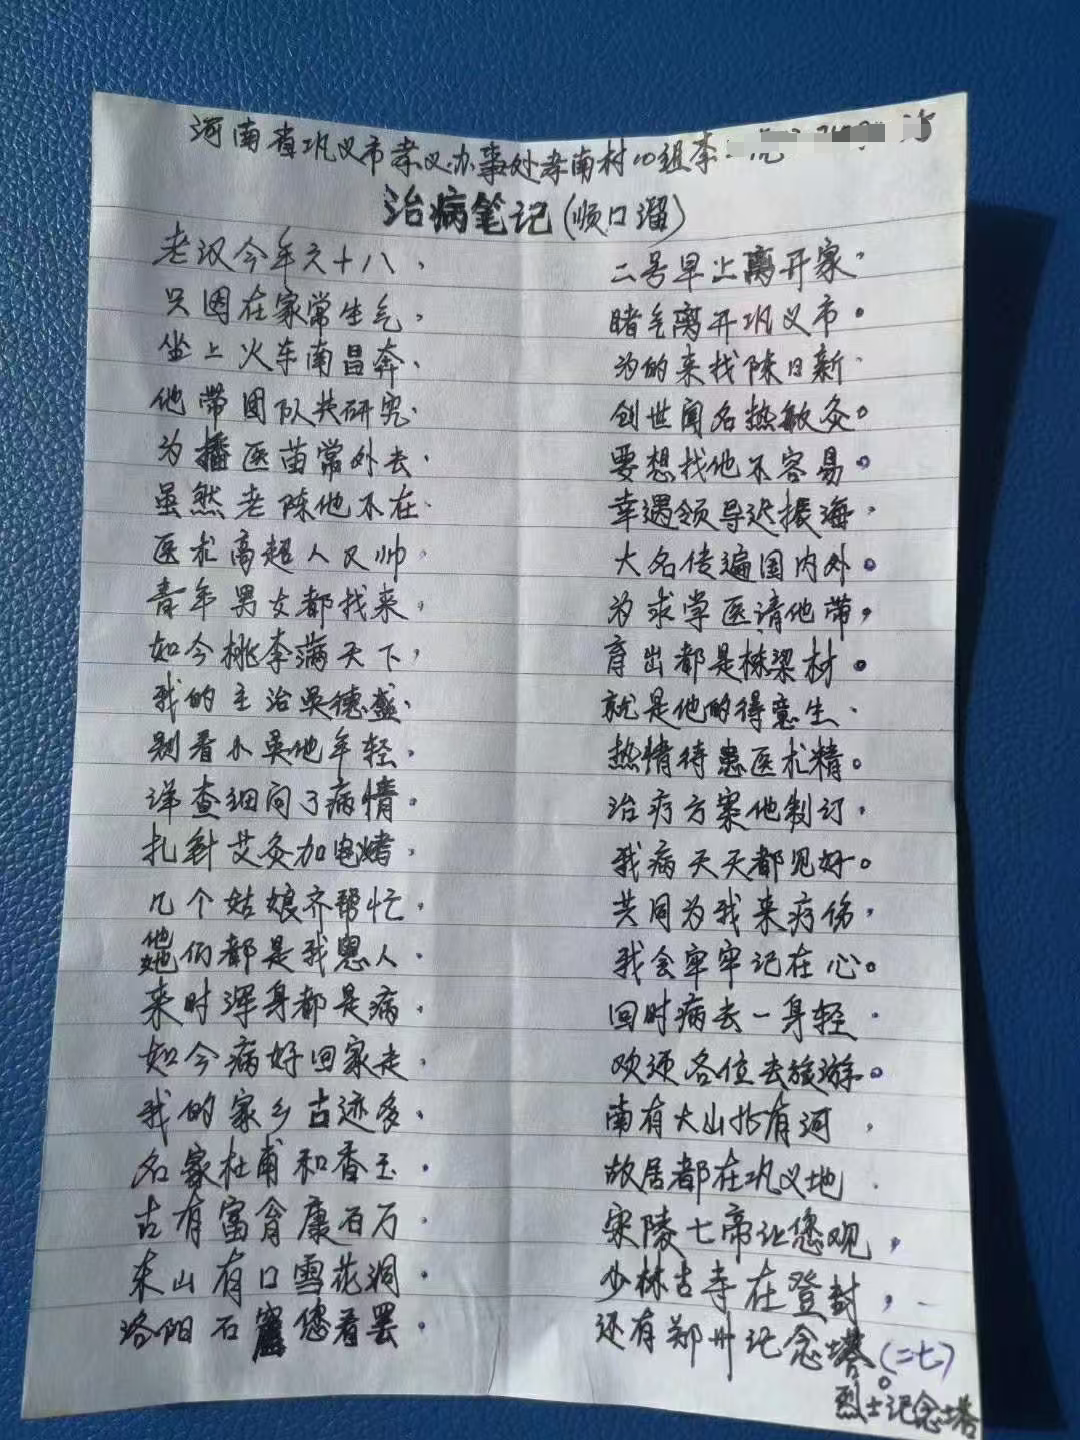 河南省巩义市孝义办事处孝南村10组李
治病笔记(顺口溜)
老汉今年六十八, 二号早上离开家,
只因在家常生气, 睹气离开巩义市。
坐上火车南昌奔, 为的来找陈日新
他带团队共研究, 创世闻名热敏灸。
为播医苗常外去, 要想找他不容易。
虽然老陈他不在, 幸遇领导迟振海,
医术高超人又帅, 大名传遍国内外。
青年男女都找来, 为求学医请他带,
如今桃李满天下, 育出都是栋梁材。
我的主治吴德盛, 就是他的得意生,
别看小吴他年轻, 热情待患医术精。
详查细问了病情, 治疗方案他制订,
扎针艾灸加电烤, 我病天天都见好。
几个姑娘齐帮忙, 共同为我来疗伤,
他她们都是我恩人, 我会牢牢记在心。
来时浑身都是病, 回时病去一身轻,
如今病好回家走, 欢迎各位去旅游。
我的家乡古迹多, 南有大山北有河,
名家杜甫和香玉, 故居都在巩义地
古有富翁康百万, 宋陵七帝让您观,
东山有口雪花洞, 少林古寺在登封,
洛阳石窟您看罢, 还有郑州记念塔。(二七)
烈士记念塔